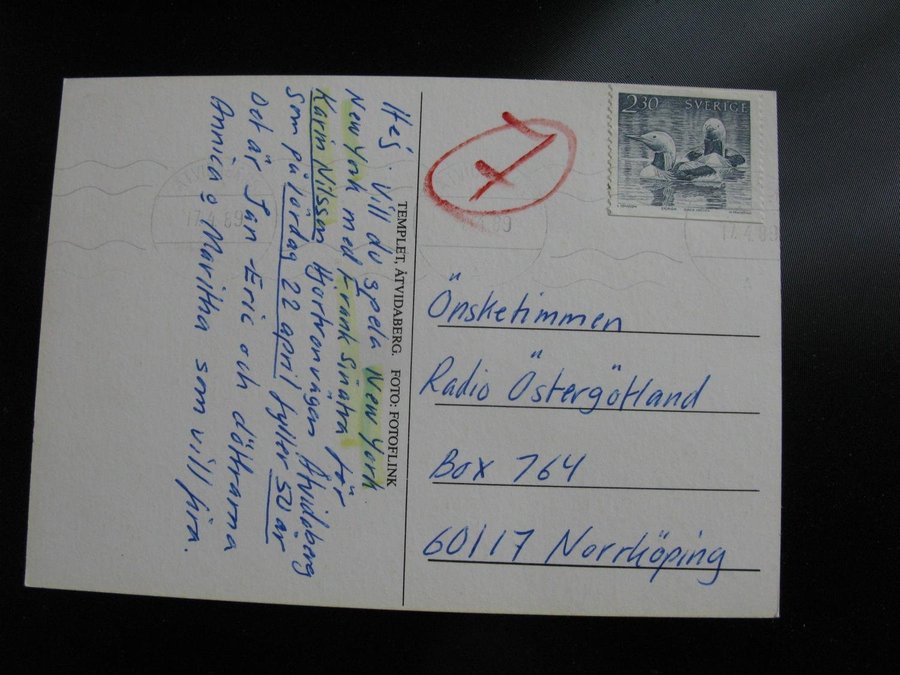 Hej. Vill du spela New York
New York med Frank Sinatra för
Karin Nilsson Hjortronvägen Åtvidaberg
som på lördag 22 april fyller 50 år
Det är Jan-Eric och döttrarna
Annica o Maritha som vill fira.
TEMPLET, ÅTVIDABERG. FOTO: FOTOFLINK
2.30 SVERIGE
17.4.89
17.4.89
17.4.89
Önsketimmen
Radio Östergötland
Box 764
60117 Norrköping